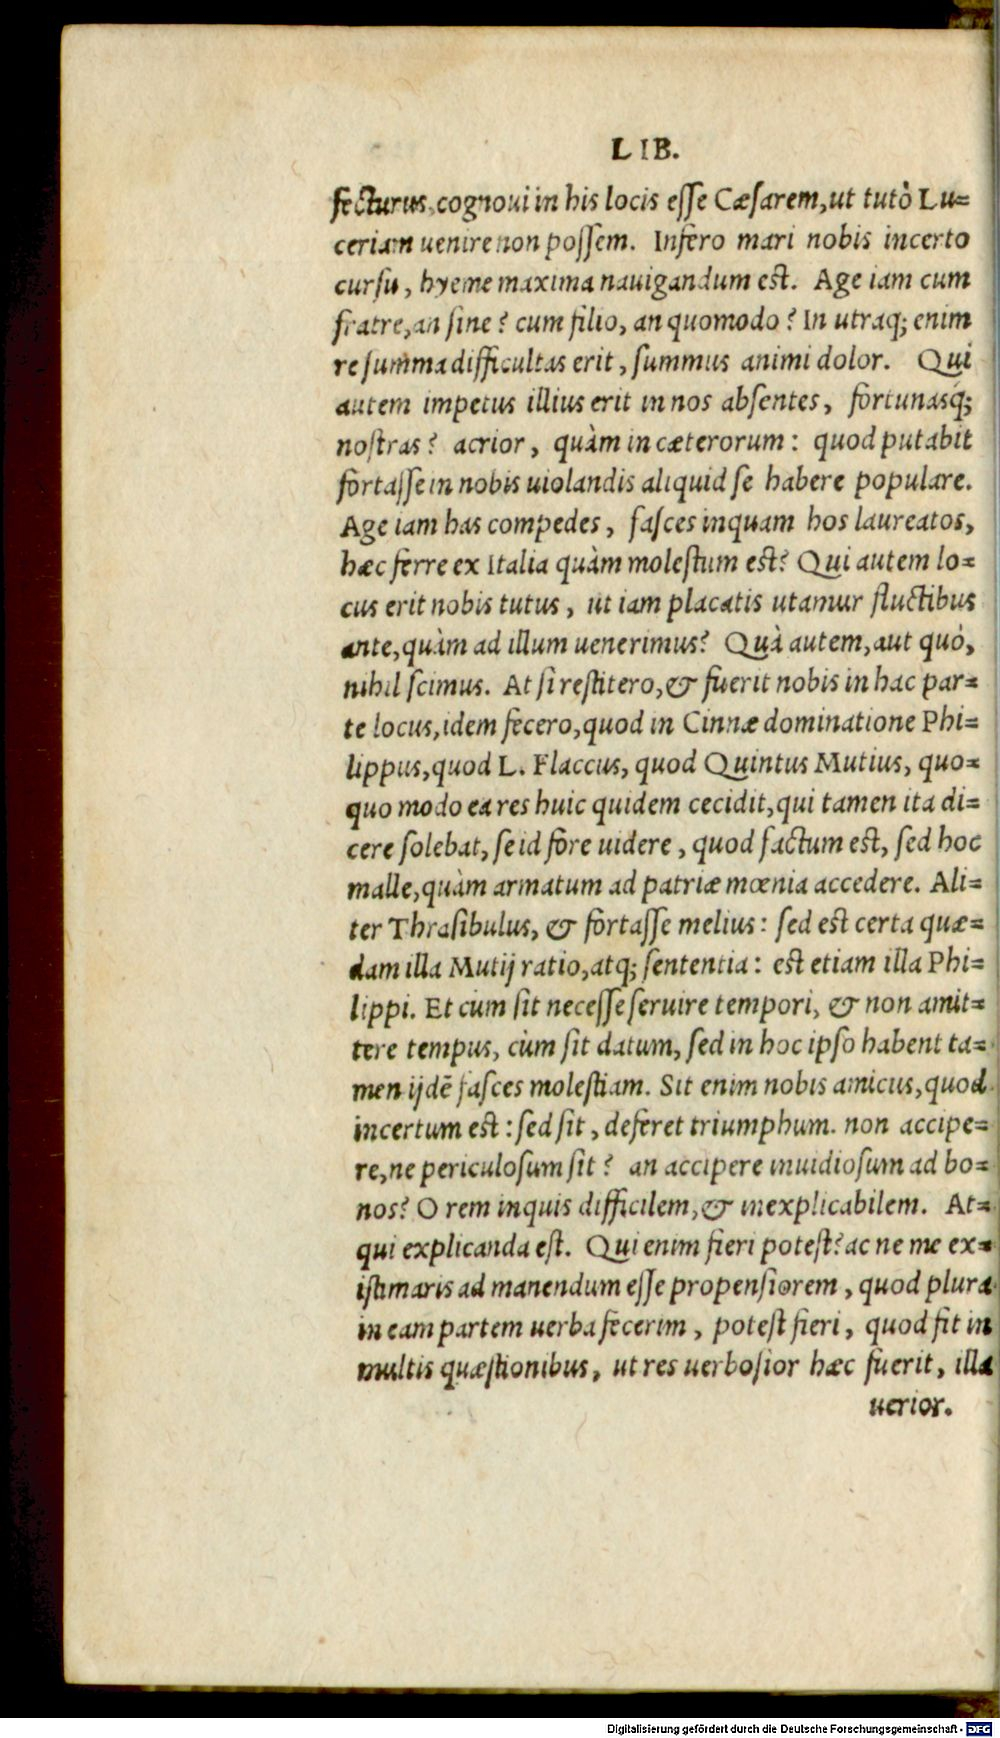 LIB.
fecturus, cognoui in his locis esse Cæsarem, ut tutò Lu=
ceriam uenire non possem. Infero mari nobis incerto
cursu, hyeme maxima nauigandum est. Age iam cum
fratre, an sine? cum filio, an quomodo? In utraq; enim
re summa difficultas erit, summus animi dolor. Qui
autem impetus illius erit in nos absentes, fortunasq́;
nostras? acrior, quàm in cæterorum: quod putabit
fortasse in nobis uiolandis aliquid se habere populare.
Age iam has compedes, fasces inquam hos laureatos,
hæc ferre ex Italia quàm molestum est? Qui autem lo=
cus erit nobis tutus, ut iam placatis utamur fluctibus
ante, quàm ad illum uenerimus? Quà autem, aut quò,
nihil scimus. At si restitero, & fuerit nobis in hac par=
te locus, idem fecero, quod in Cinnæ dominatione Phi=
lippus, quod L. Flaccus, quod Quintus Mutius, quo=
quo modo ea res huic quidem cecidit, qui tamen ita di=
cere solebat, se id fore uidere, quod factum est, sed hoc
malle, quàm armatum ad patriæ mœnia accedere. Ali=
ter Thrasibulus, & fortasse melius: sed est certa quæ=
dam illa Mutij ratio, atq; sententia: est etiam illa Phi=
lippi. Et cùm sit necesse seruire tempori, & non amit=
tere tempus, cùm sit datum, sed in hoc ipso habent ta=
men ijdē fasces molestiam. Sit enim nobis amicus, quod
incertum est: sed sit, deferet triumphum. non accipe=
re, ne periculosum sit? an accipere inuidiosum ad bo=
nos? O rem inquis difficilem, & inexplicabilem. At=
qui explicanda est. Qui enim fieri potest? ac ne me ex=
istimaris ad manendum esse propensiorem, quod plura
in eam partem uerba fecerim, potest fieri, quod fit in
multis quæstionibus, ut res uerbosior hæc fuerit, illa
uerior.
Digitalisierung gefördert durch die Deutsche Forschungsgemeinschaft - DFG